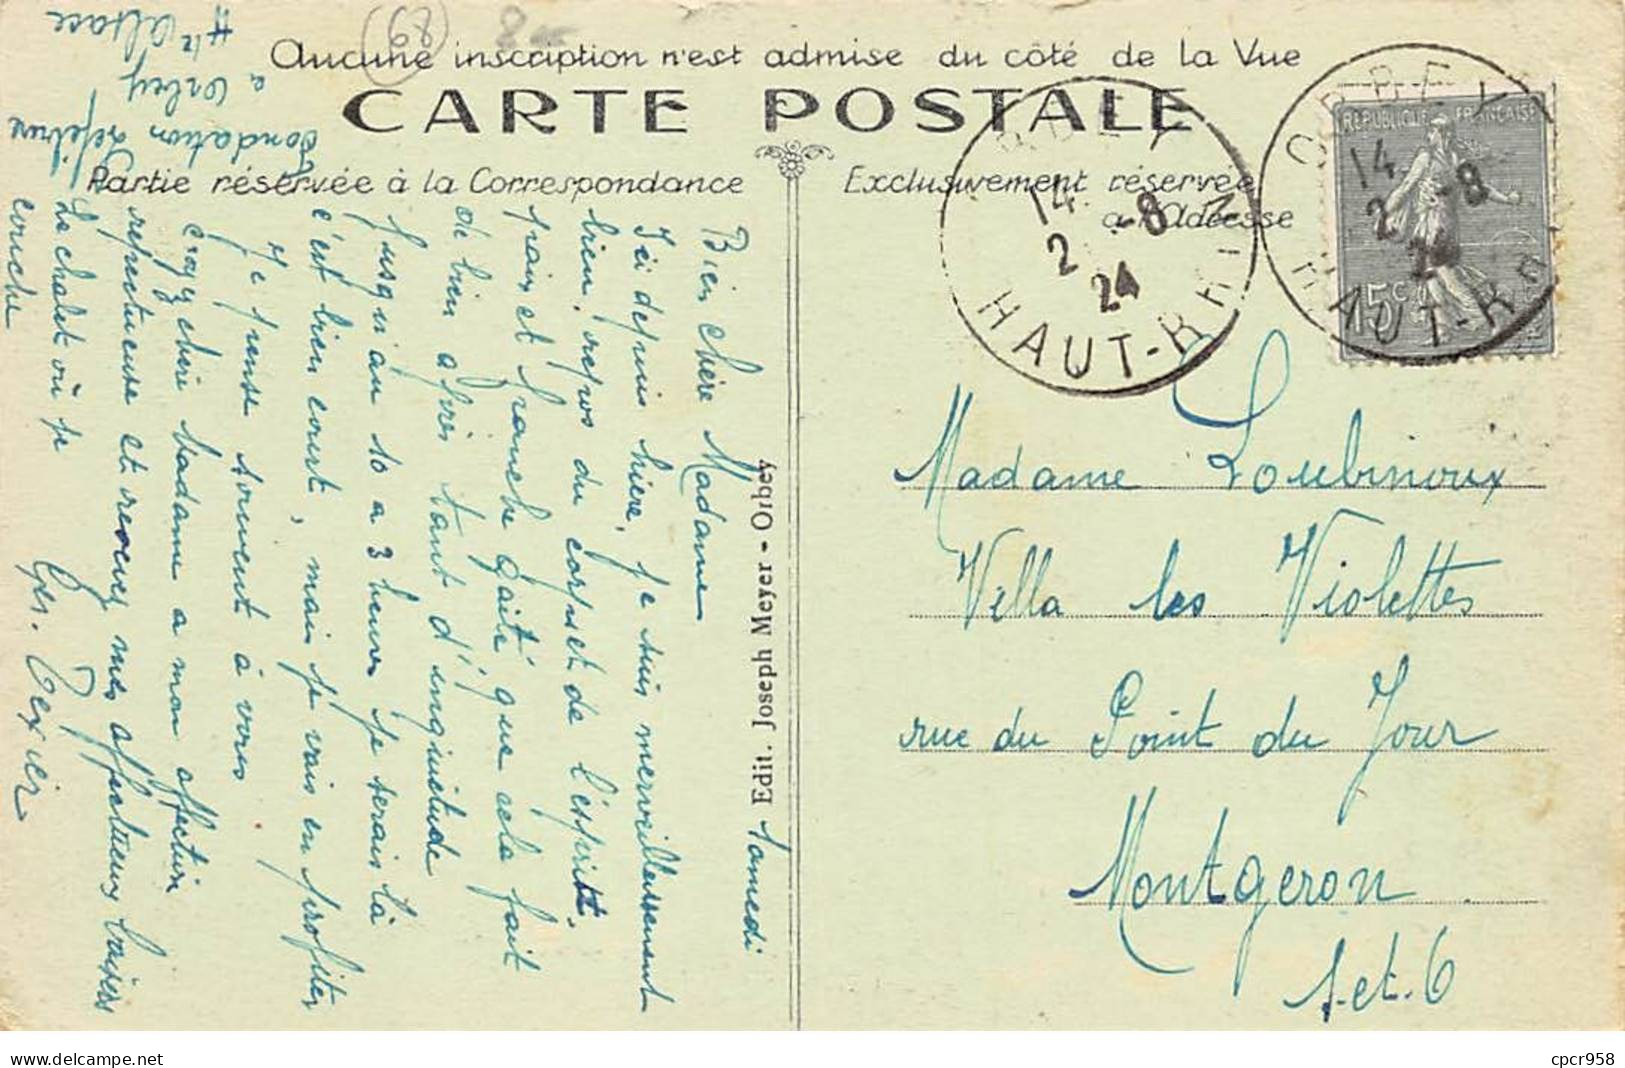 (68)
Aucune inscription n'est admise du côté de la Vue
CARTE POSTALE
Partie réservée à la Correspondance
Exclusivement réservée
a l'Adresse
RÉPUBLIQUE FRANÇAISE
15c
ORBEY
14
2 -8
24
HAUT-RHIN
ORBEY
14
2 -8
24
HAUT-RHIN
samedi
Bien chère Madame
Ici depuis hière, je suis merveilleusement
bien, repos du corps et de l'esprit.
frais et franche gaité que cela fait
de bien après tant d'inquiétude
jusqu'au 10 a 3 heures je serais là
c'est bien court, mais je vais en profiter
Je pense souvent à vous
croyez chère Madame a mon affection
respectueuse et recevez mes affectueux baisers
Le chalet où je
couche
Ger. Texier
Fondation Lefébure
a Orbey
Hte Alsace
Edit. Joseph Meyer - Orbey
Madame Loubinoux
Villa les Violettes
rue du Point du Jour
Montgeron
S.et.O
cpcr958